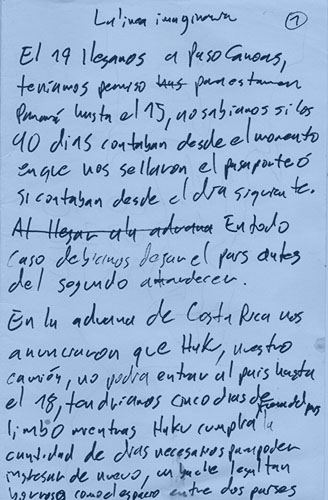 La linea imaginaria
1
El 19 llegamos a Paso Canoas,
teniamos permiso para estar en
Panamá hasta el 15, no sabiamos si los
90 dias contaban desde el momento
en que nos sellaron el pasaporte ó
si contaban desde el dia siguiente.
Al llegar a la aduana En todo
caso debiamos dejar el pais antes
del segundo amanecer.
En la aduana de Costa Rica nos
anunciaron que Huk, nuestro
camión, no podia entrar al pais hasta
el 18, tendriamos cinco dias de
limbo mientras Huk cumplia la
cantidad de dias necesarios para poder
ingresar de nuevo, un bache legal tan
como el espacio entre dos paises